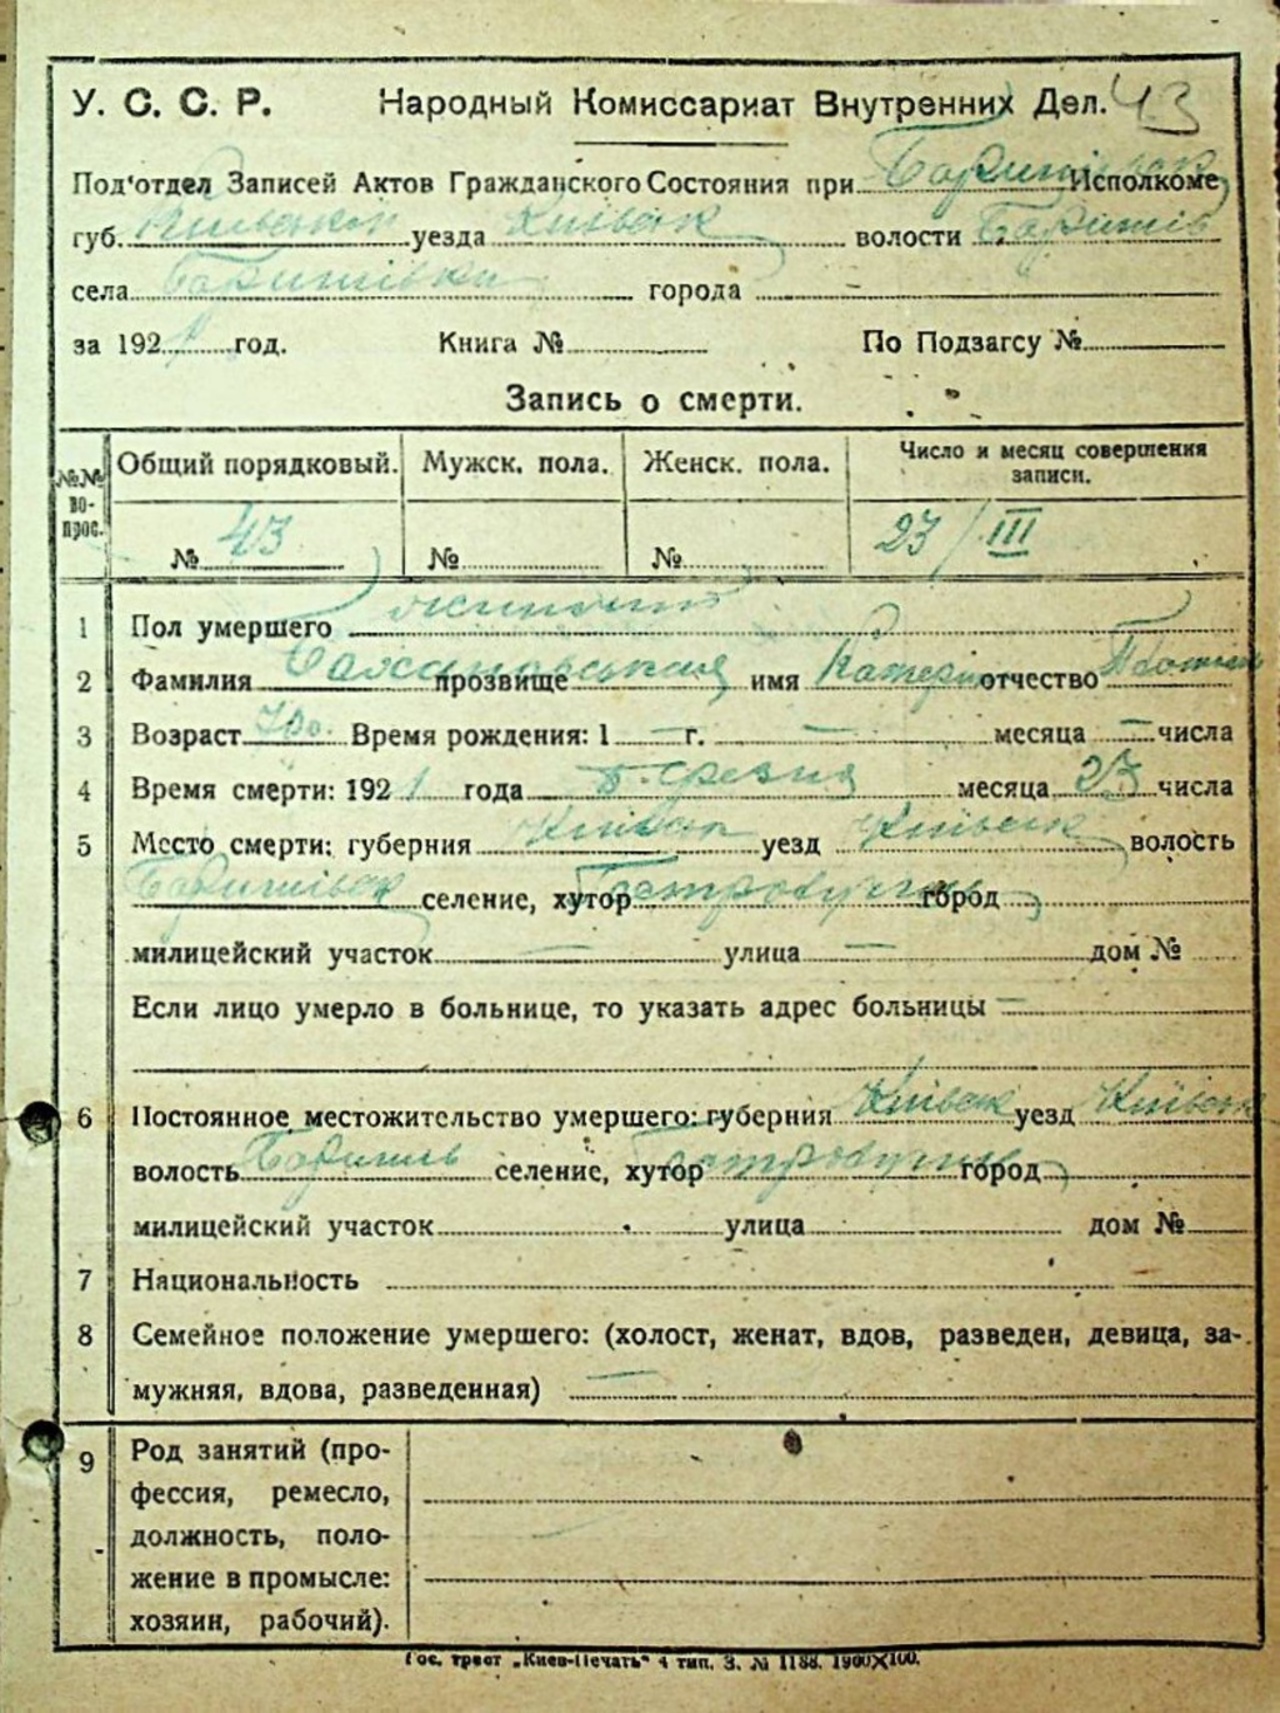 У. С. С. Р. Народный Комиссариат Внутренних Дел. 43
Под'отдел Записей Актов Гражданского Состояния при Исполкоме
губ. уезда Київськ волости Баришів
села Баришівки города —
за 1921 год. Книга № По Подзагсу №
Запись о смерти.
№№ вопрос. Общий порядковый. Мужск. пола. Женск. пола. Число и месяц совершения записи.
№ 43 № № 23/III
1 Пол умершего жиночий
2 Фамилия прозвище имя Катерин отчество
3 Возраст Время рождения: 1 — г. — месяца — числа
4 Время смерти: 1921 года березня месяца 23 числа
5 Место смерти: губерния Київськ уезд Київськ волость
Баришівськ селение, хутор город
милицейский участок — улица — дом №
Если лицо умерло в больнице, то указать адрес больницы —
6 Постоянное местожительство умершего: губерния Київськ уезд Київськ
волость Баришів селение, хутор город
милицейский участок улица дом №
7 Национальность
8 Семейное положение умершего: (холост, женат, вдов, разведен, девица, за-
мужняя, вдова, разведенная) —
9 Род занятий (про-
фессия, ремесло,
должность, поло-
жение в промысле:
хозяин, рабочий).
Гос. трест „Киев-Печать" 4 тип. З. № 1188. 1900X100.